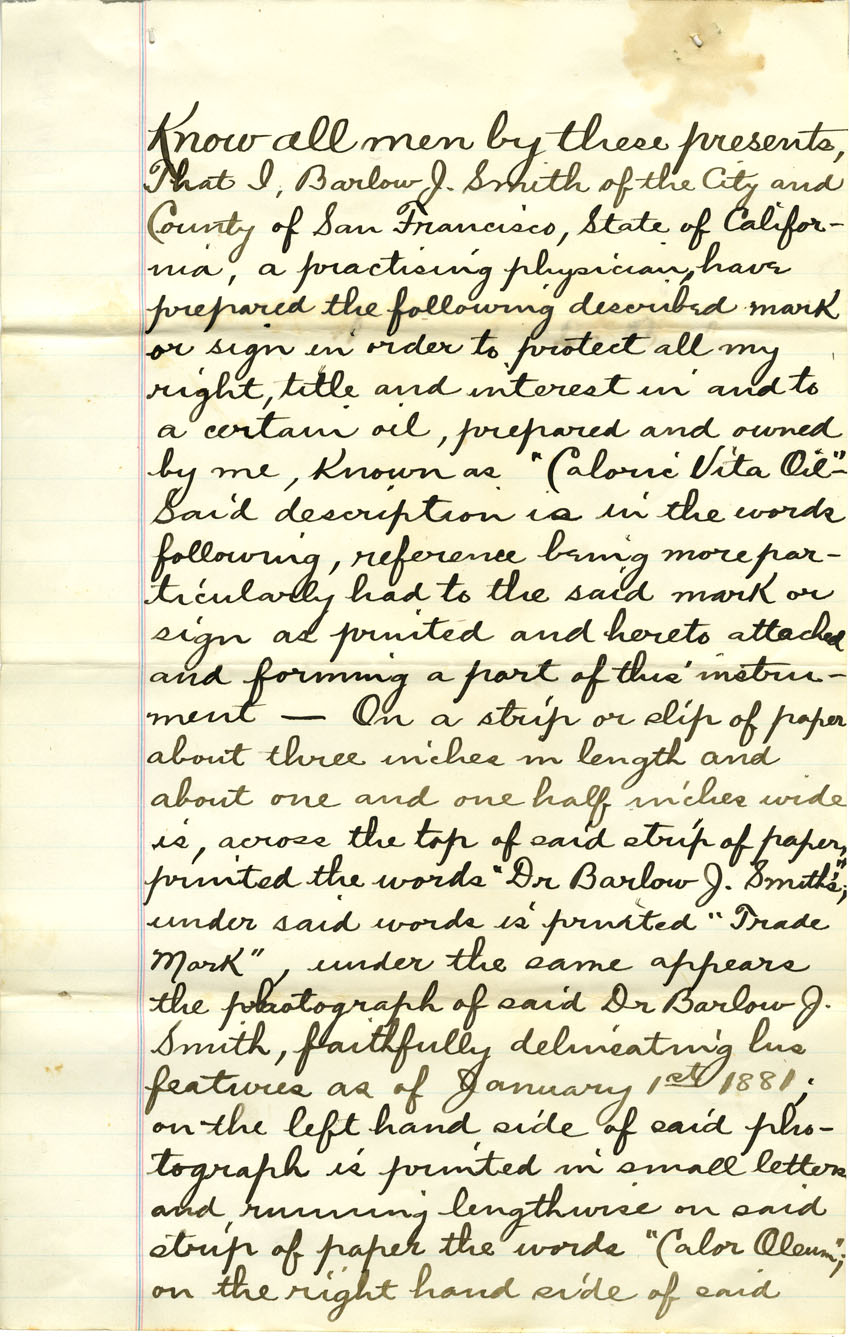 Know all men by these presents,
That I, Barlow J. Smith of the City and
County of San Francisco, State of Califor-
nia, a practising physician, have
prepared the following described mark
or sign in order to protect all my
right, title and interest in and to
a certain oil, prepared and owned
by me, Known as "Caloric Vita Oil"-
Said description is in the words
following, reference being more par-
ticularly had to the said mark or
sign as printed and hereto attached
and forming a part of this instru-
ment — On a strip or slip of paper
about three inches in length and
about one and one half inches wide
is, across the top of said strip of paper,
printed the words "Dr Barlow J. Smith's";
under said words is printed "Trade
Mark", under the same appears
the photograph of said Dr Barlow J.
Smith, faithfully delineating his
features as of January 1st 1881;
on the left hand side of said pho-
tograph is printed in small letters
and running lengthwise on said
strip of paper the words "Calor Oleum";
on the right hand side of said